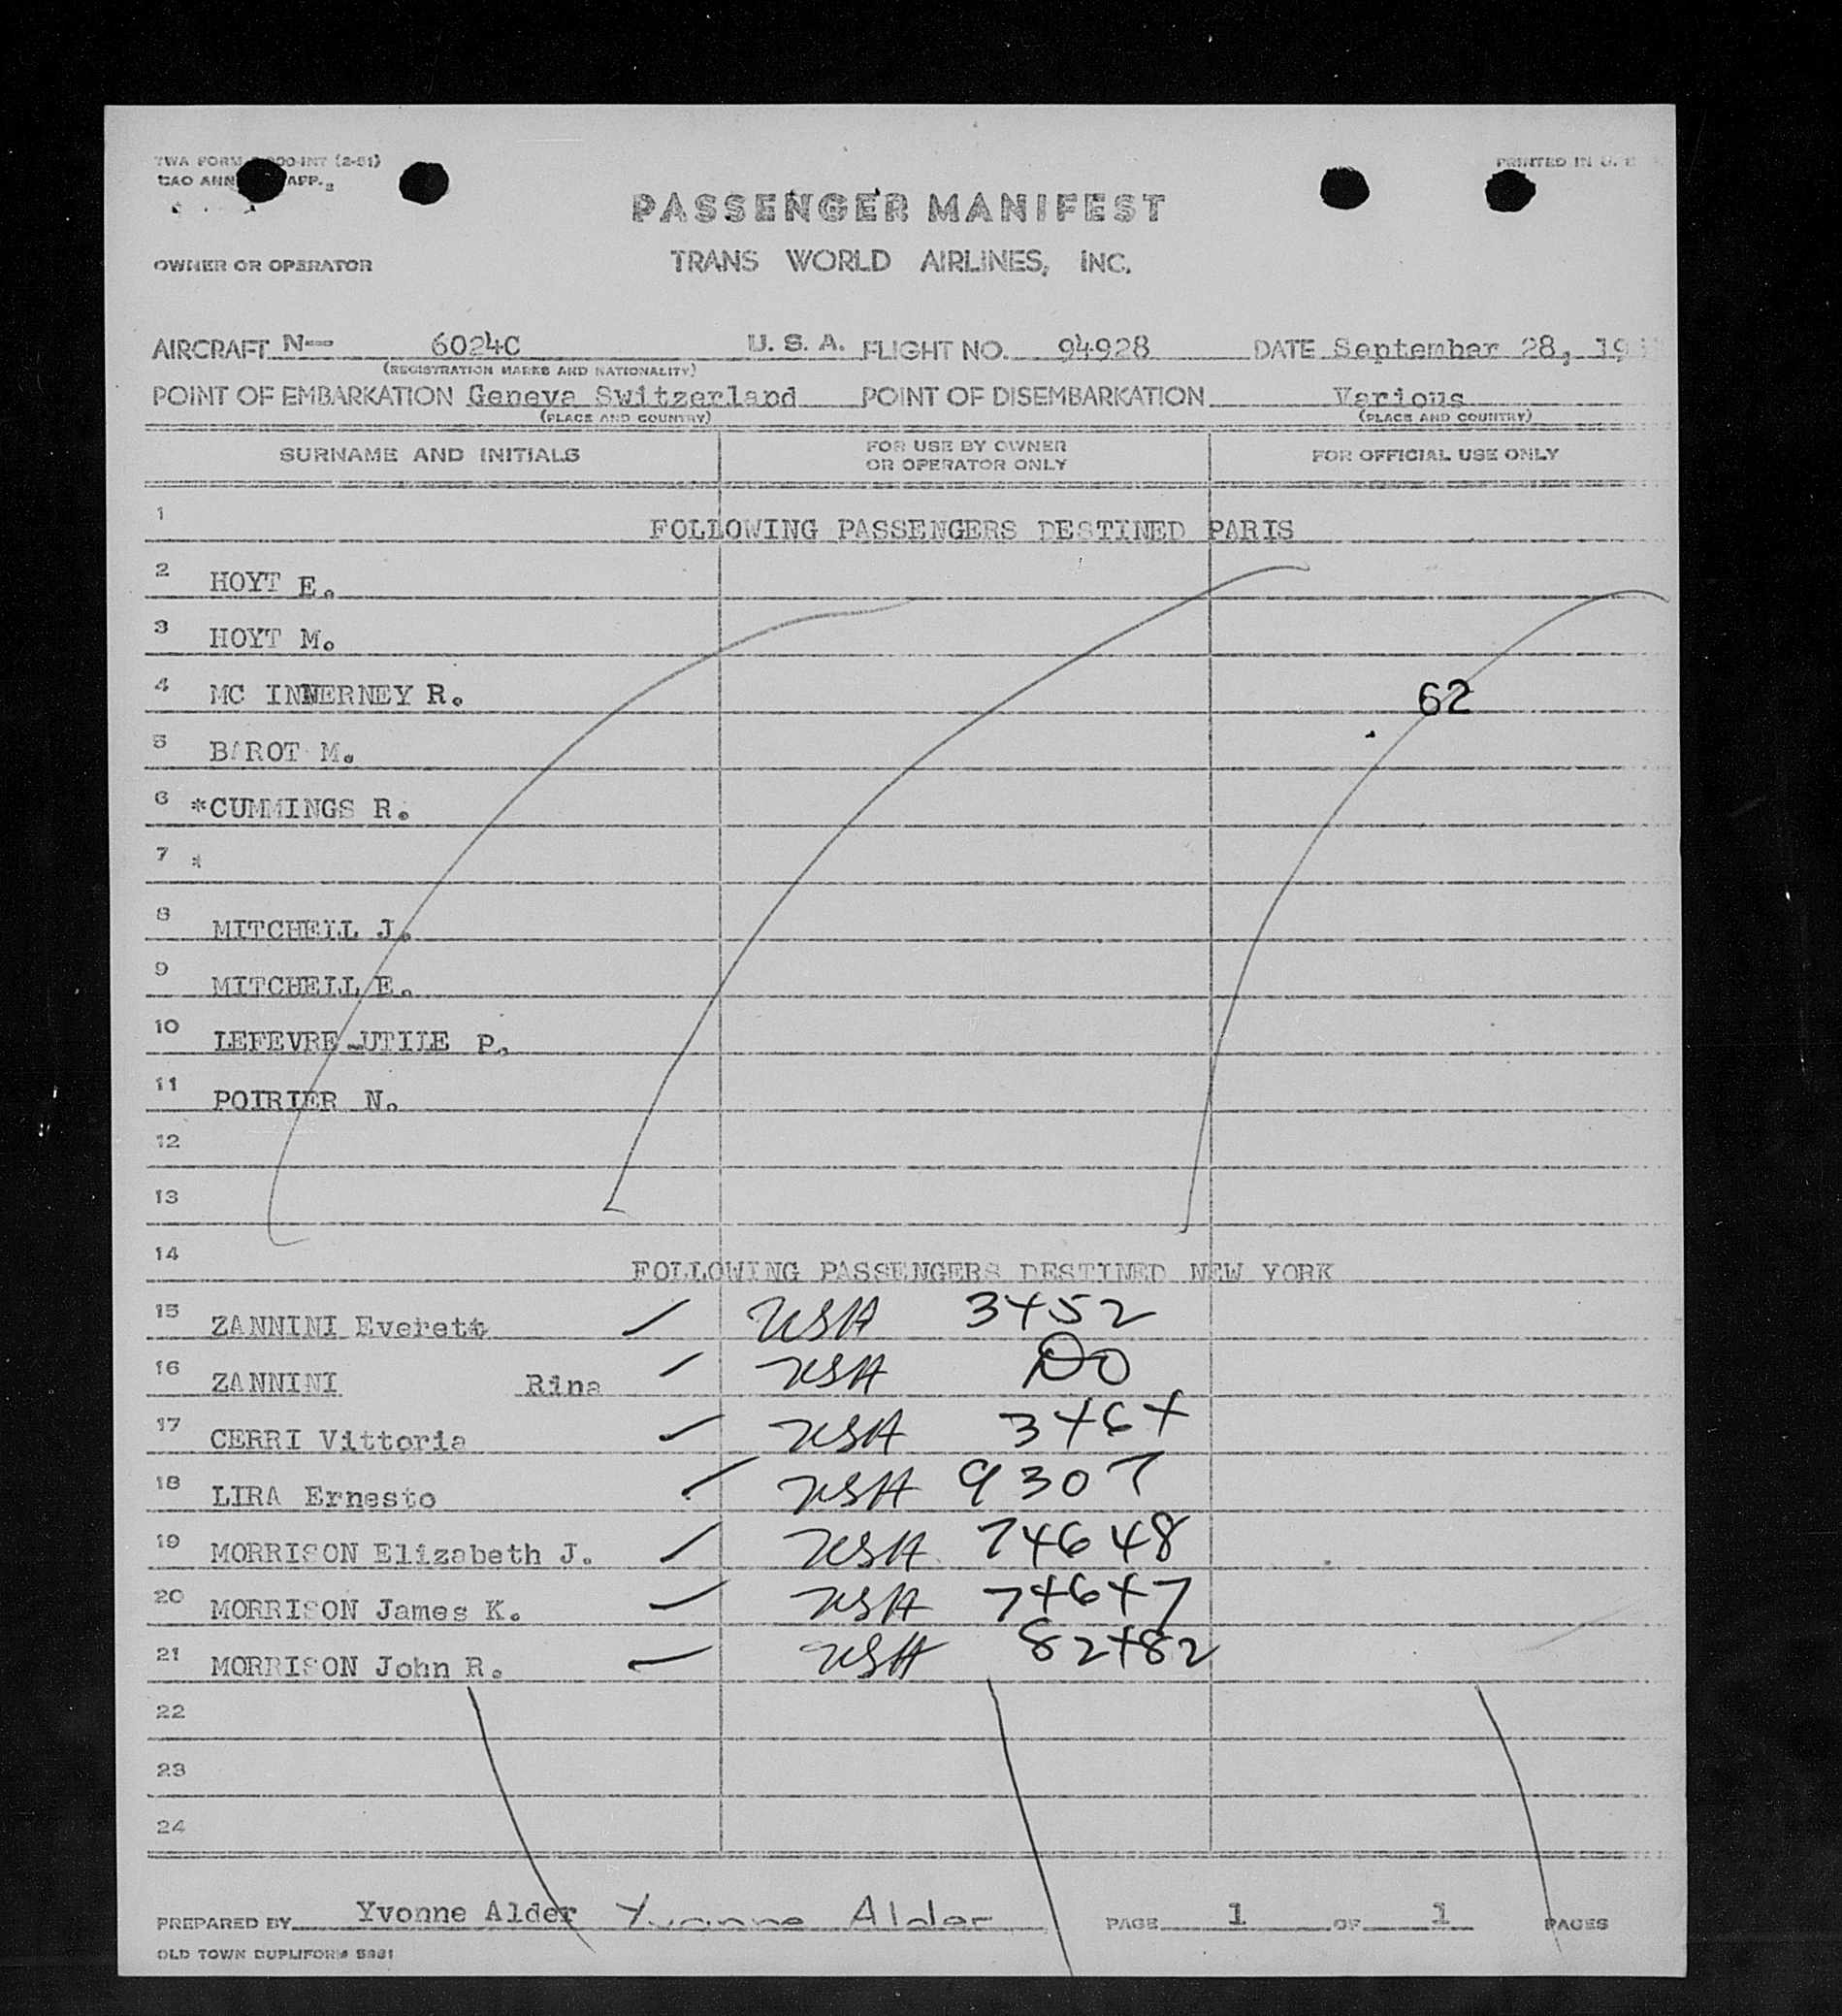 TWA FORM 00-INT (2-51)
PRINTED IN U. S
CAO ANN APP. 2
PASSENGER MANIFEST
OWNER OR OPERATOR
TRANS WORLD AIRLINES, INC.
AIRCRAFT N-- 6024C U. S. A. FLIGHT NO. 94928 DATE September 28, 19
(REGISTRATION MARKS AND NATIONALITY)
POINT OF EMBARKATION Geneva Switzerland POINT OF DISEMBARKATION Various
(PLACE AND COUNTRY) (PLACE AND COUNTRY)
SURNAME AND INITIALS FOR USE BY OWNER OR OPERATOR ONLY FOR OFFICIAL USE ONLY
1 FOLLOWING PASSENGERS DESTINED PARIS
2 HOYT E.
3 HOYT M.
4 MC INNERNEY R. 62
5 BAROT M.
6 *CUMMINGS R.
7 *
8 MITCHELL J.
9 MITCHELL E.
10 LEFEVRE-UTILE P.
11 POIRIER N.
12
13
14 FOLLOWING PASSENGERS DESTINED NEW YORK
15 ZANNINI Everett USA 3452
16 ZANNINI Rina USA DO
17 CERRI Vittoria USA 3464
18 LIRA Ernesto USA 9307
19 MORRISON Elizabeth J. USA 74648
20 MORRISON James K. USA 74647
21 MORRISON John R. USA 82482
22
23
24
PREPARED BY Yvonne Alder Yvonne Alder PAGE 1 OF 1 PAGES
OLD TOWN DUPLIFORM